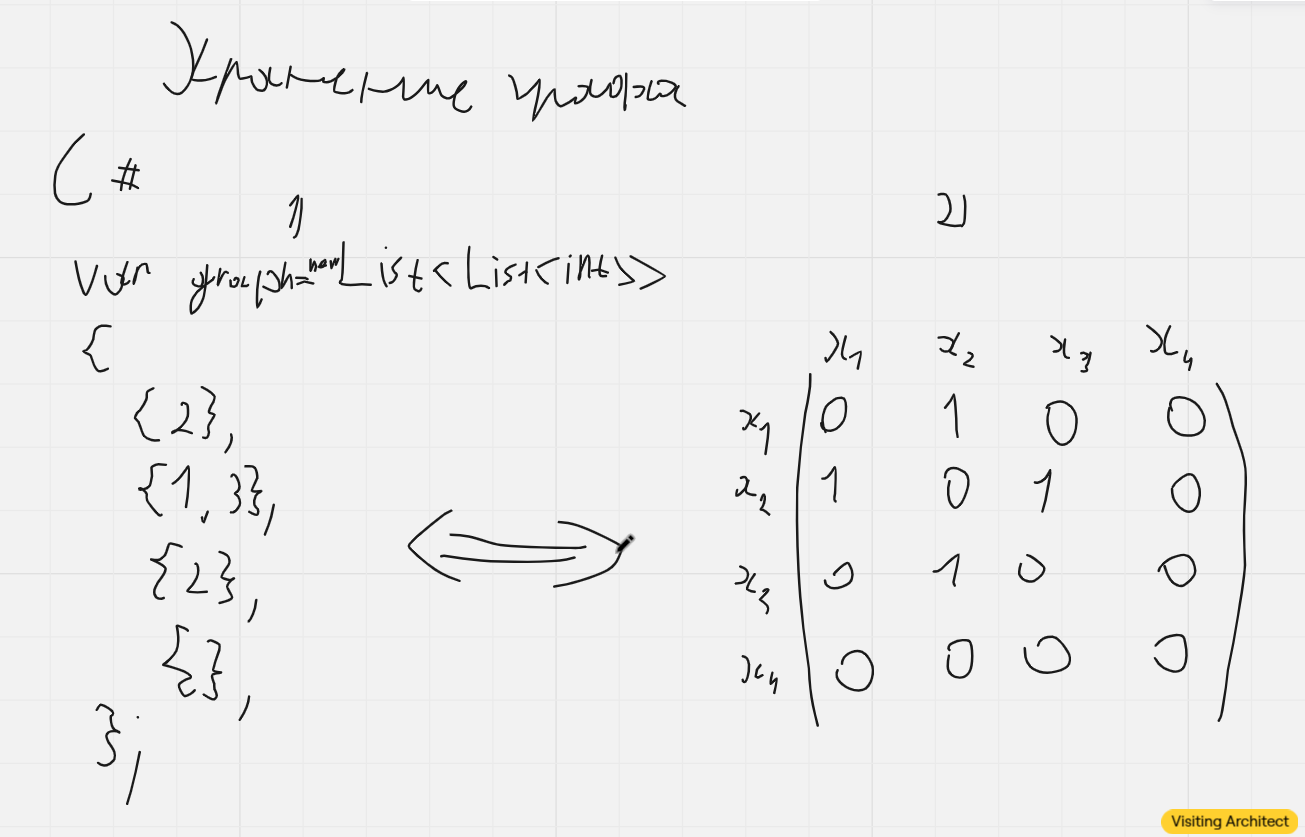 Хранение графа
C #
1)
var graph = new List<List<int>>
{
{2},
{1, 3},
{2},
{},
};
2)
x1 x2 x3 x4
x1 0 1 0 0
x2 1 0 1 0
x3 0 1 0 0
x4 0 0 0 0
Visiting Architect